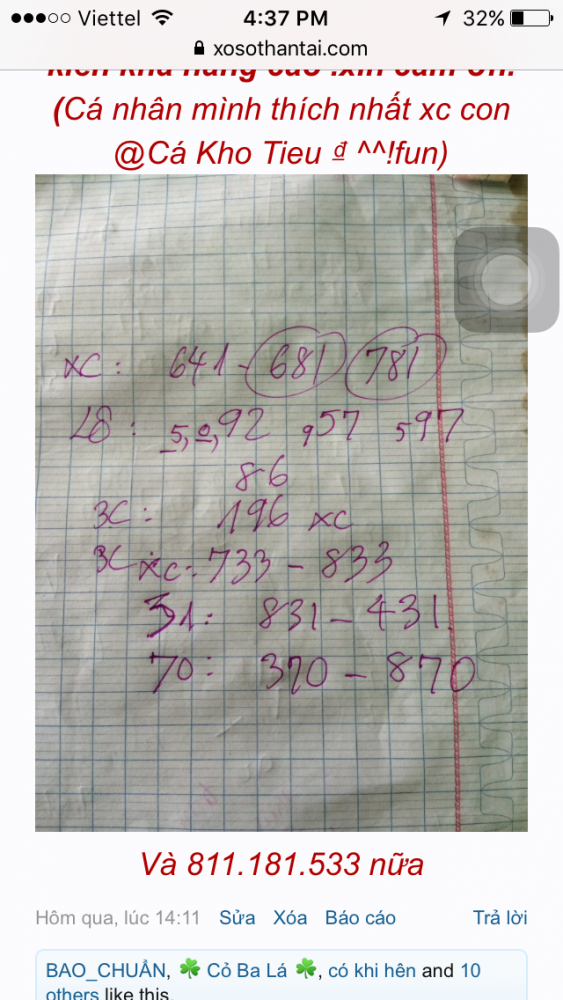 Viettel 4:37 PM 32%
xosothantai.com
kiến khả năng cao .xin cảm ơn.
(Cá nhân mình thích nhất xc con
@Cá Kho Tieu ₫ ^^!fun)
xc: 641 - 681 781
Lô: 5,0,92 957 597
86
3C: 196 xc
3C xc: 733 - 833
31: 831 - 431
70: 370 - 870
Và 811.181.533 nữa
Hôm qua, lúc 14:11 Sửa Xóa Báo cáo Trả lời
BAO_CHUẨN, ☘ Cỏ Ba Lá ☘, có khi hên and 10
others like this.